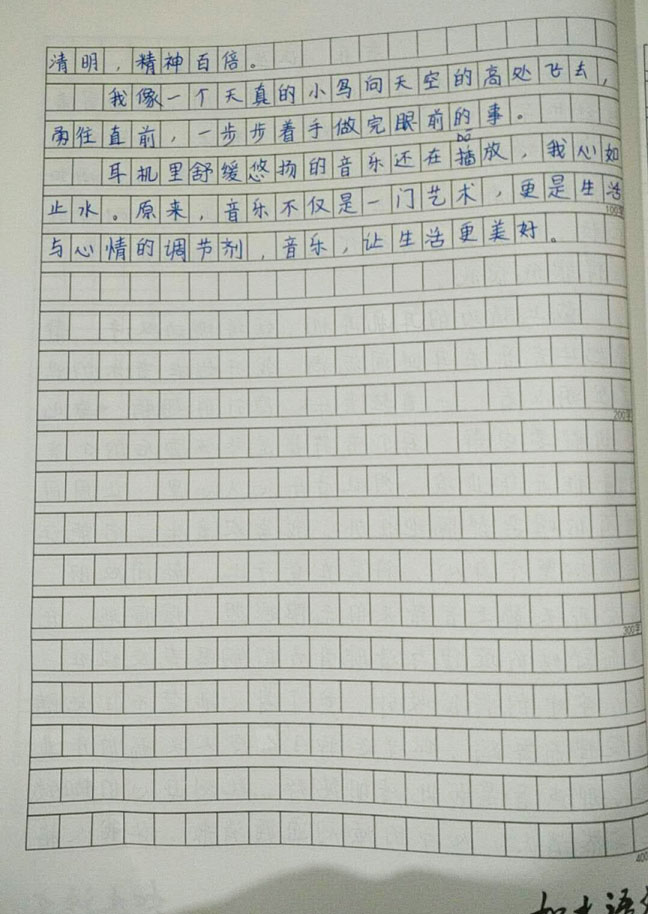 清明，精神百倍。
我像一个天真的小鸟向天空的高处飞去，
勇往直前，一步步着手做完眼前的事。
bō
耳机里舒缓悠扬的音乐还在播放，我心如
止水。原来，音乐不仅是一门艺术，更是生活
100字
与心情的调节剂，音乐，让生活更美好。
200字
300字
400